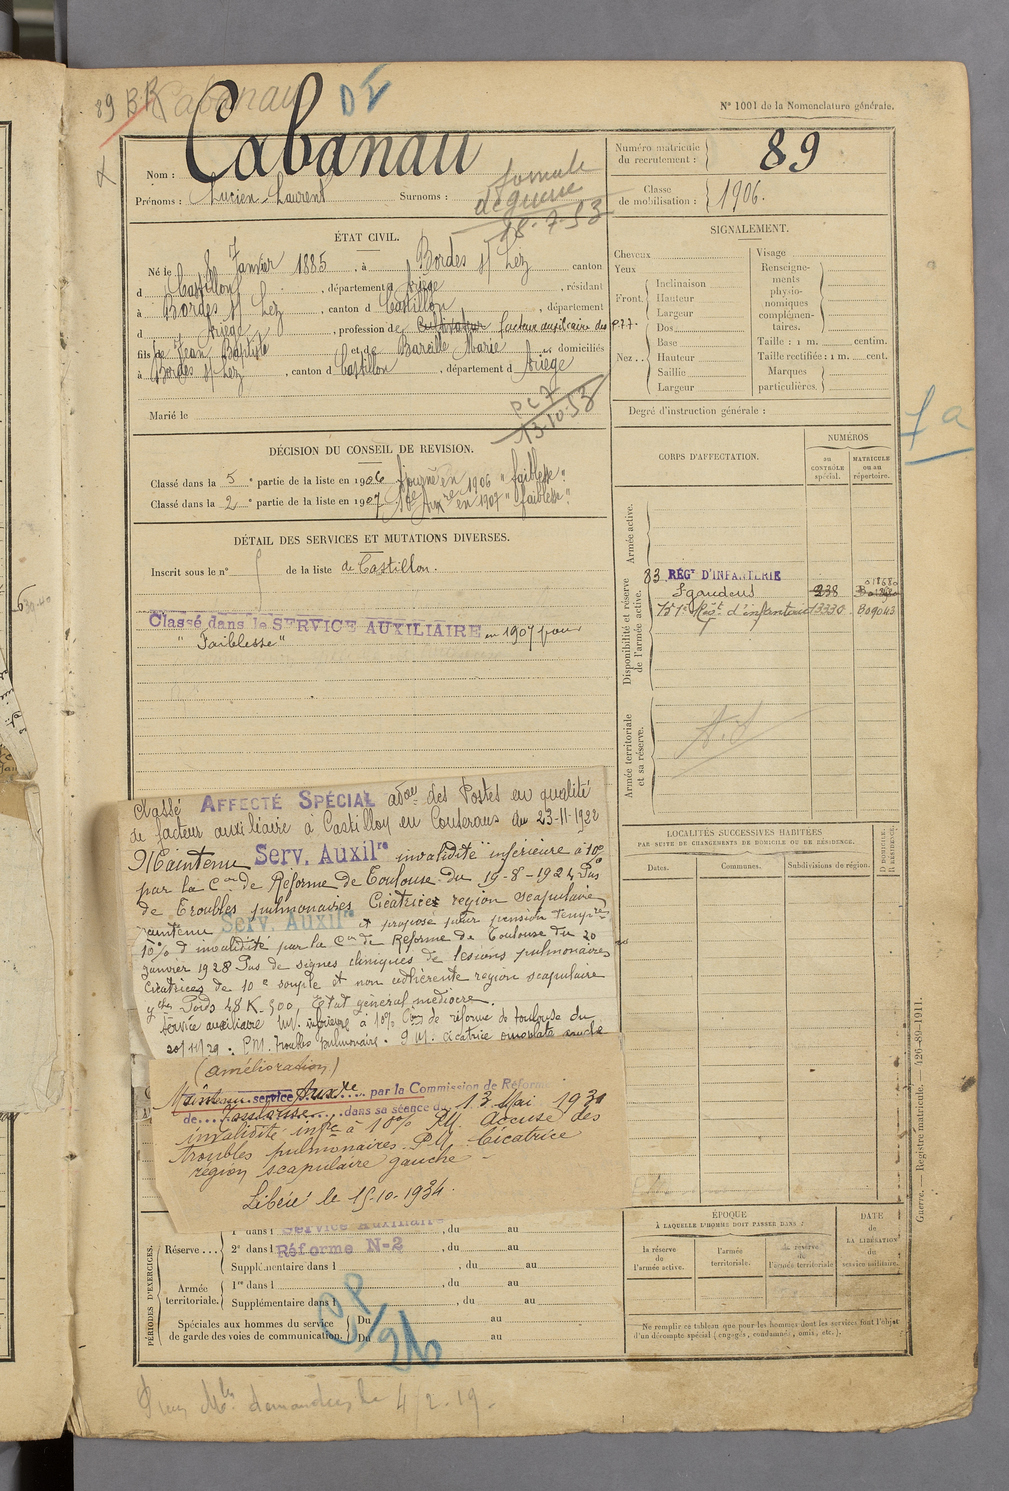 89 B.R Cabanau DI
N° 1001 de la Nomenclature générale.
Nom : Cabanau
Prénoms : Lucien-Laurent Surnoms :
formule
de guerre
18-7-53
Numéro matricule
du recrutement : 89
Classe
de mobilisation : 1906.
ÉTAT CIVIL.
Né le 8 Janvier 1885, à Bordes s/ Lez canton
d Castillon, département d Ariège, résidant
à Bordes s/ Lez, canton d Castillon, département
d Ariège, profession de cultivateur facteur auxiliaire des P.T.T.
fils de Jean Baptiste et de Bareille Marie domiciliés
à Bordes s/ Lez, canton d Castillon, département d Ariège
Marié le
13-10-53
SIGNALEMENT.
Cheveux
Yeux
Front. Inclinaison
Hauteur
Largeur
Nez Dos
Base
Hauteur
Saillie
Largeur
Visage
Renseigne-
ments
physio-
nomiques
complémen-
taires.
Taille : 1 m. centim.
Taille rectifiée : 1 m. cent.
Marques
particulières.
Degré d'instruction générale :
1 a
DÉCISION DU CONSEIL DE REVISION.
Classé dans la 5 e partie de la liste en 1906 Ajourné en 1906 "faiblesse".
Classé dans la 2 e partie de la liste en 1907 en 1907 "faiblesse".
DÉTAIL DES SERVICES ET MUTATIONS DIVERSES.
Inscrit sous le n° de la liste de Castillon.
Classé dans le SERVICE AUXILIAIRE en 1907 pour
"Faiblesse"
CORPS D'AFFECTATION.
NUMÉROS
au
CONTRÔLE
spécial.
MATRICULE
ou au
répertoire.
Armée active.
Disponibilité et réserve
de l'armée active.
83 RÉGt D'INFANTERIE
St gaudens 238
Régt d'infanterie 13330
Armée territoriale
et sa réserve.
classé AFFECTÉ SPÉCIAL des Postes en qualité
de facteur auxiliaire à Castillon en Couserans du 23-11-1922
Maintenu Serv. Auxilre invalidité inférieure à 10%
par la Con de Réforme de Toulouse du 19-8-1924 Pas
de troubles pulmonaires Cicatrices région scapulaire
maintenu Serv. Auxilre et proposé pour pension tempre
10% d'invalidité par la Con de Réforme de Toulouse du 20
janvier 1928 Pas de signes cliniques de lésions pulmonaires
cicatrices de 10 c souple et non adhérente région scapulaire
gche Poids 48 K. 500. Etat général médiocre.
Service auxiliaire inv. inférieure à 10% Con de réforme de Toulouse du
20/11/29. P.M. troubles pulmonaire. cicatrice omoplate gauche
(amélioration)
Maintenu service Auxre par la Commission de Réforme
de Toulouse dans sa séance du 13 Mai 1931
invalidité infre à 10% Accuse des
troubles pulmonaires. Cicatrice
région scapulaire gauche -
Libéré le 15-10-1934.
LOCALITÉS SUCCESSIVES HABITÉES
PAR SUITE DE CHANGEMENTS DE DOMICILE OU DE RÉSIDENCE.
Dates. Communes. Subdivisions de région.
D DOMICILE.
R RÉSIDENCE.
PÉRIODES D'EXERCICES.
Réserve... 1re dans l Service Auxiliaire, du au
2e dans l Réforme N-2, du au
Supplémentaire dans l, du au
Armée
territoriale. 1re dans l, du au
Supplémentaire dans l, du au
Spéciales aux hommes du service
de garde des voies de communication. Du au
Du au
CP/26
ÉPOQUE
À LAQUELLE L'HOMME DOIT PASSER DANS :
la réserve
de
l'armée active.
l'armée
territoriale.
la réserve
de
l'armée territoriale
DATE
de
LA LIBÉRATION
du
service militaire.
Ne remplir ce tableau que pour les hommes dont les services font l'objet
d'un décompte spécial (engagés, condamnés, omis, etc.).
Guerre. — Registre matricule. — 426-89-1911.
demandées le 4/2-19.